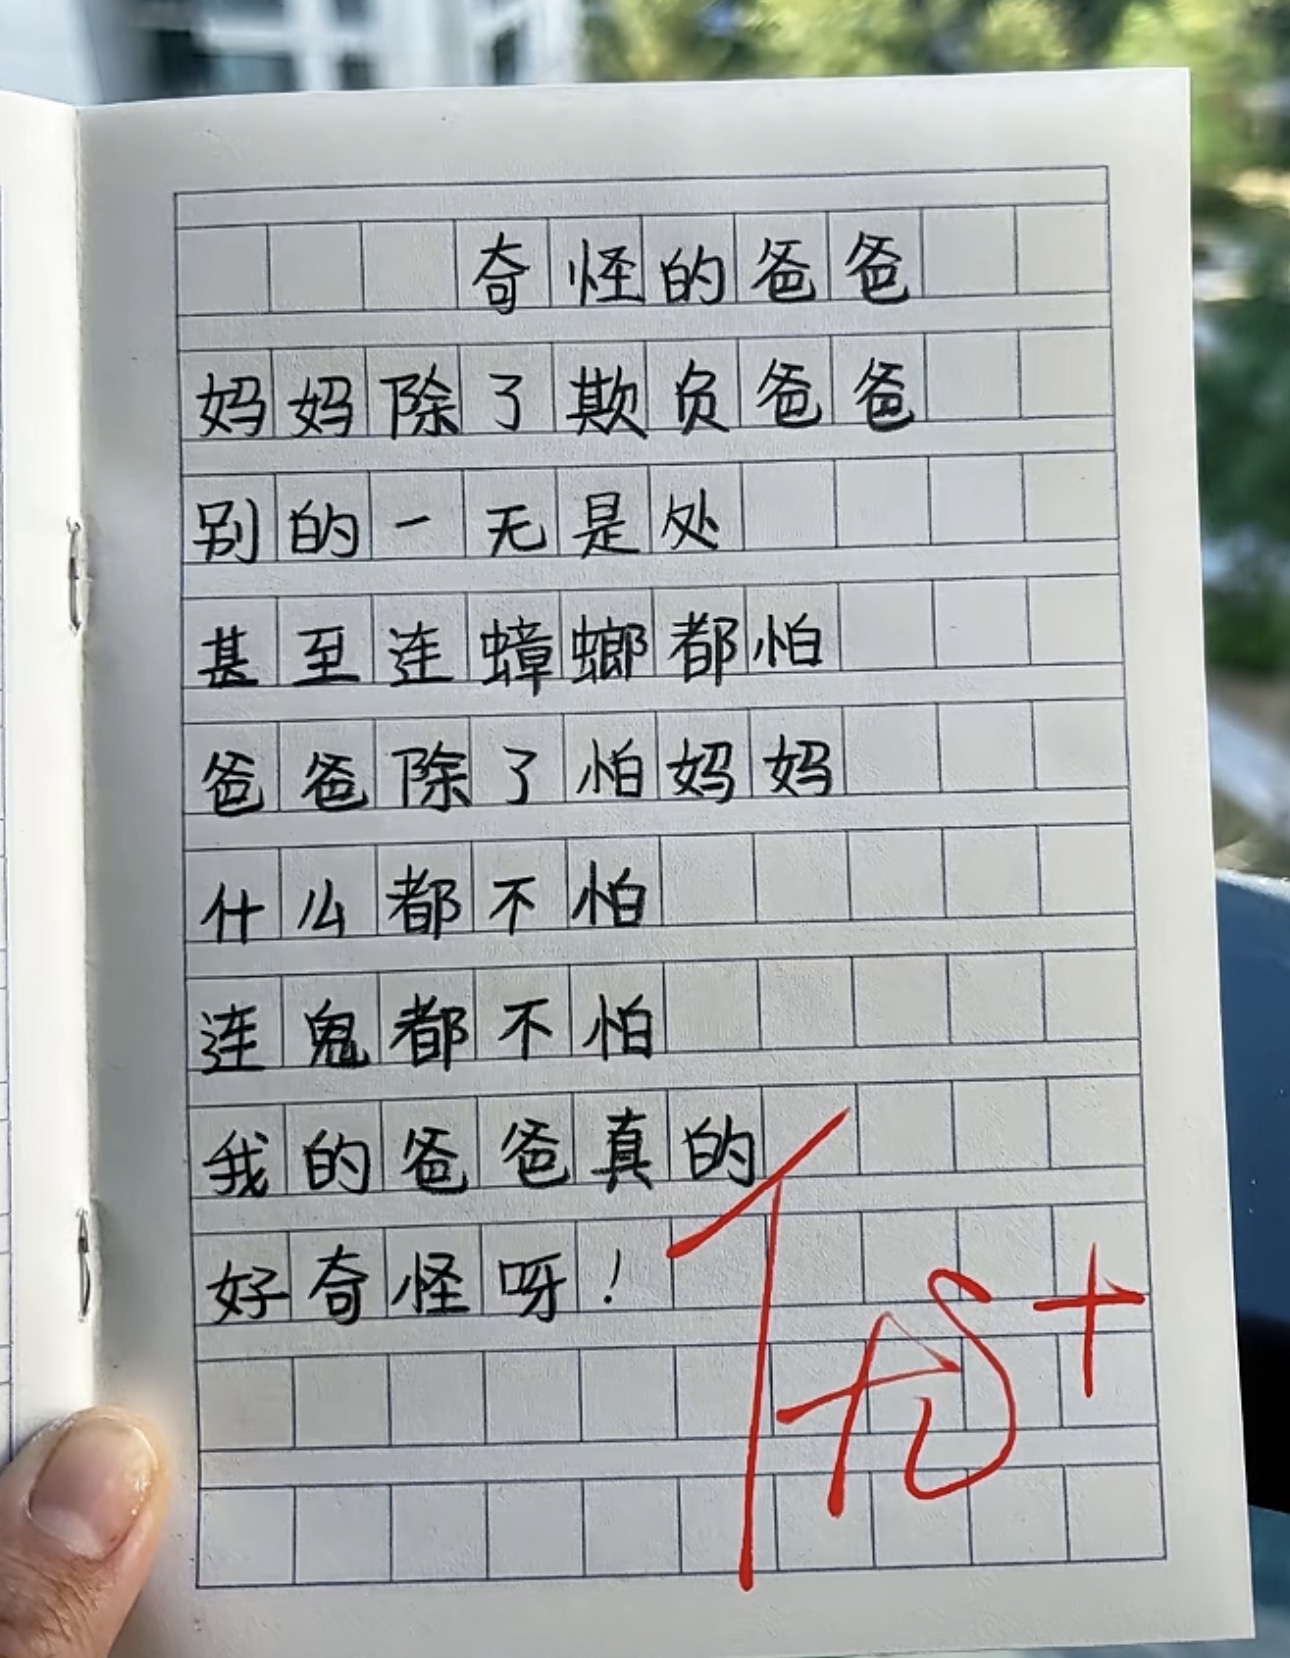 奇怪的爸爸
妈妈除了欺负爸爸
别的一无是处
甚至连蟑螂都怕
爸爸除了怕妈妈
什么都不怕
连鬼都不怕
我的爸爸真的
好奇怪呀！
优+